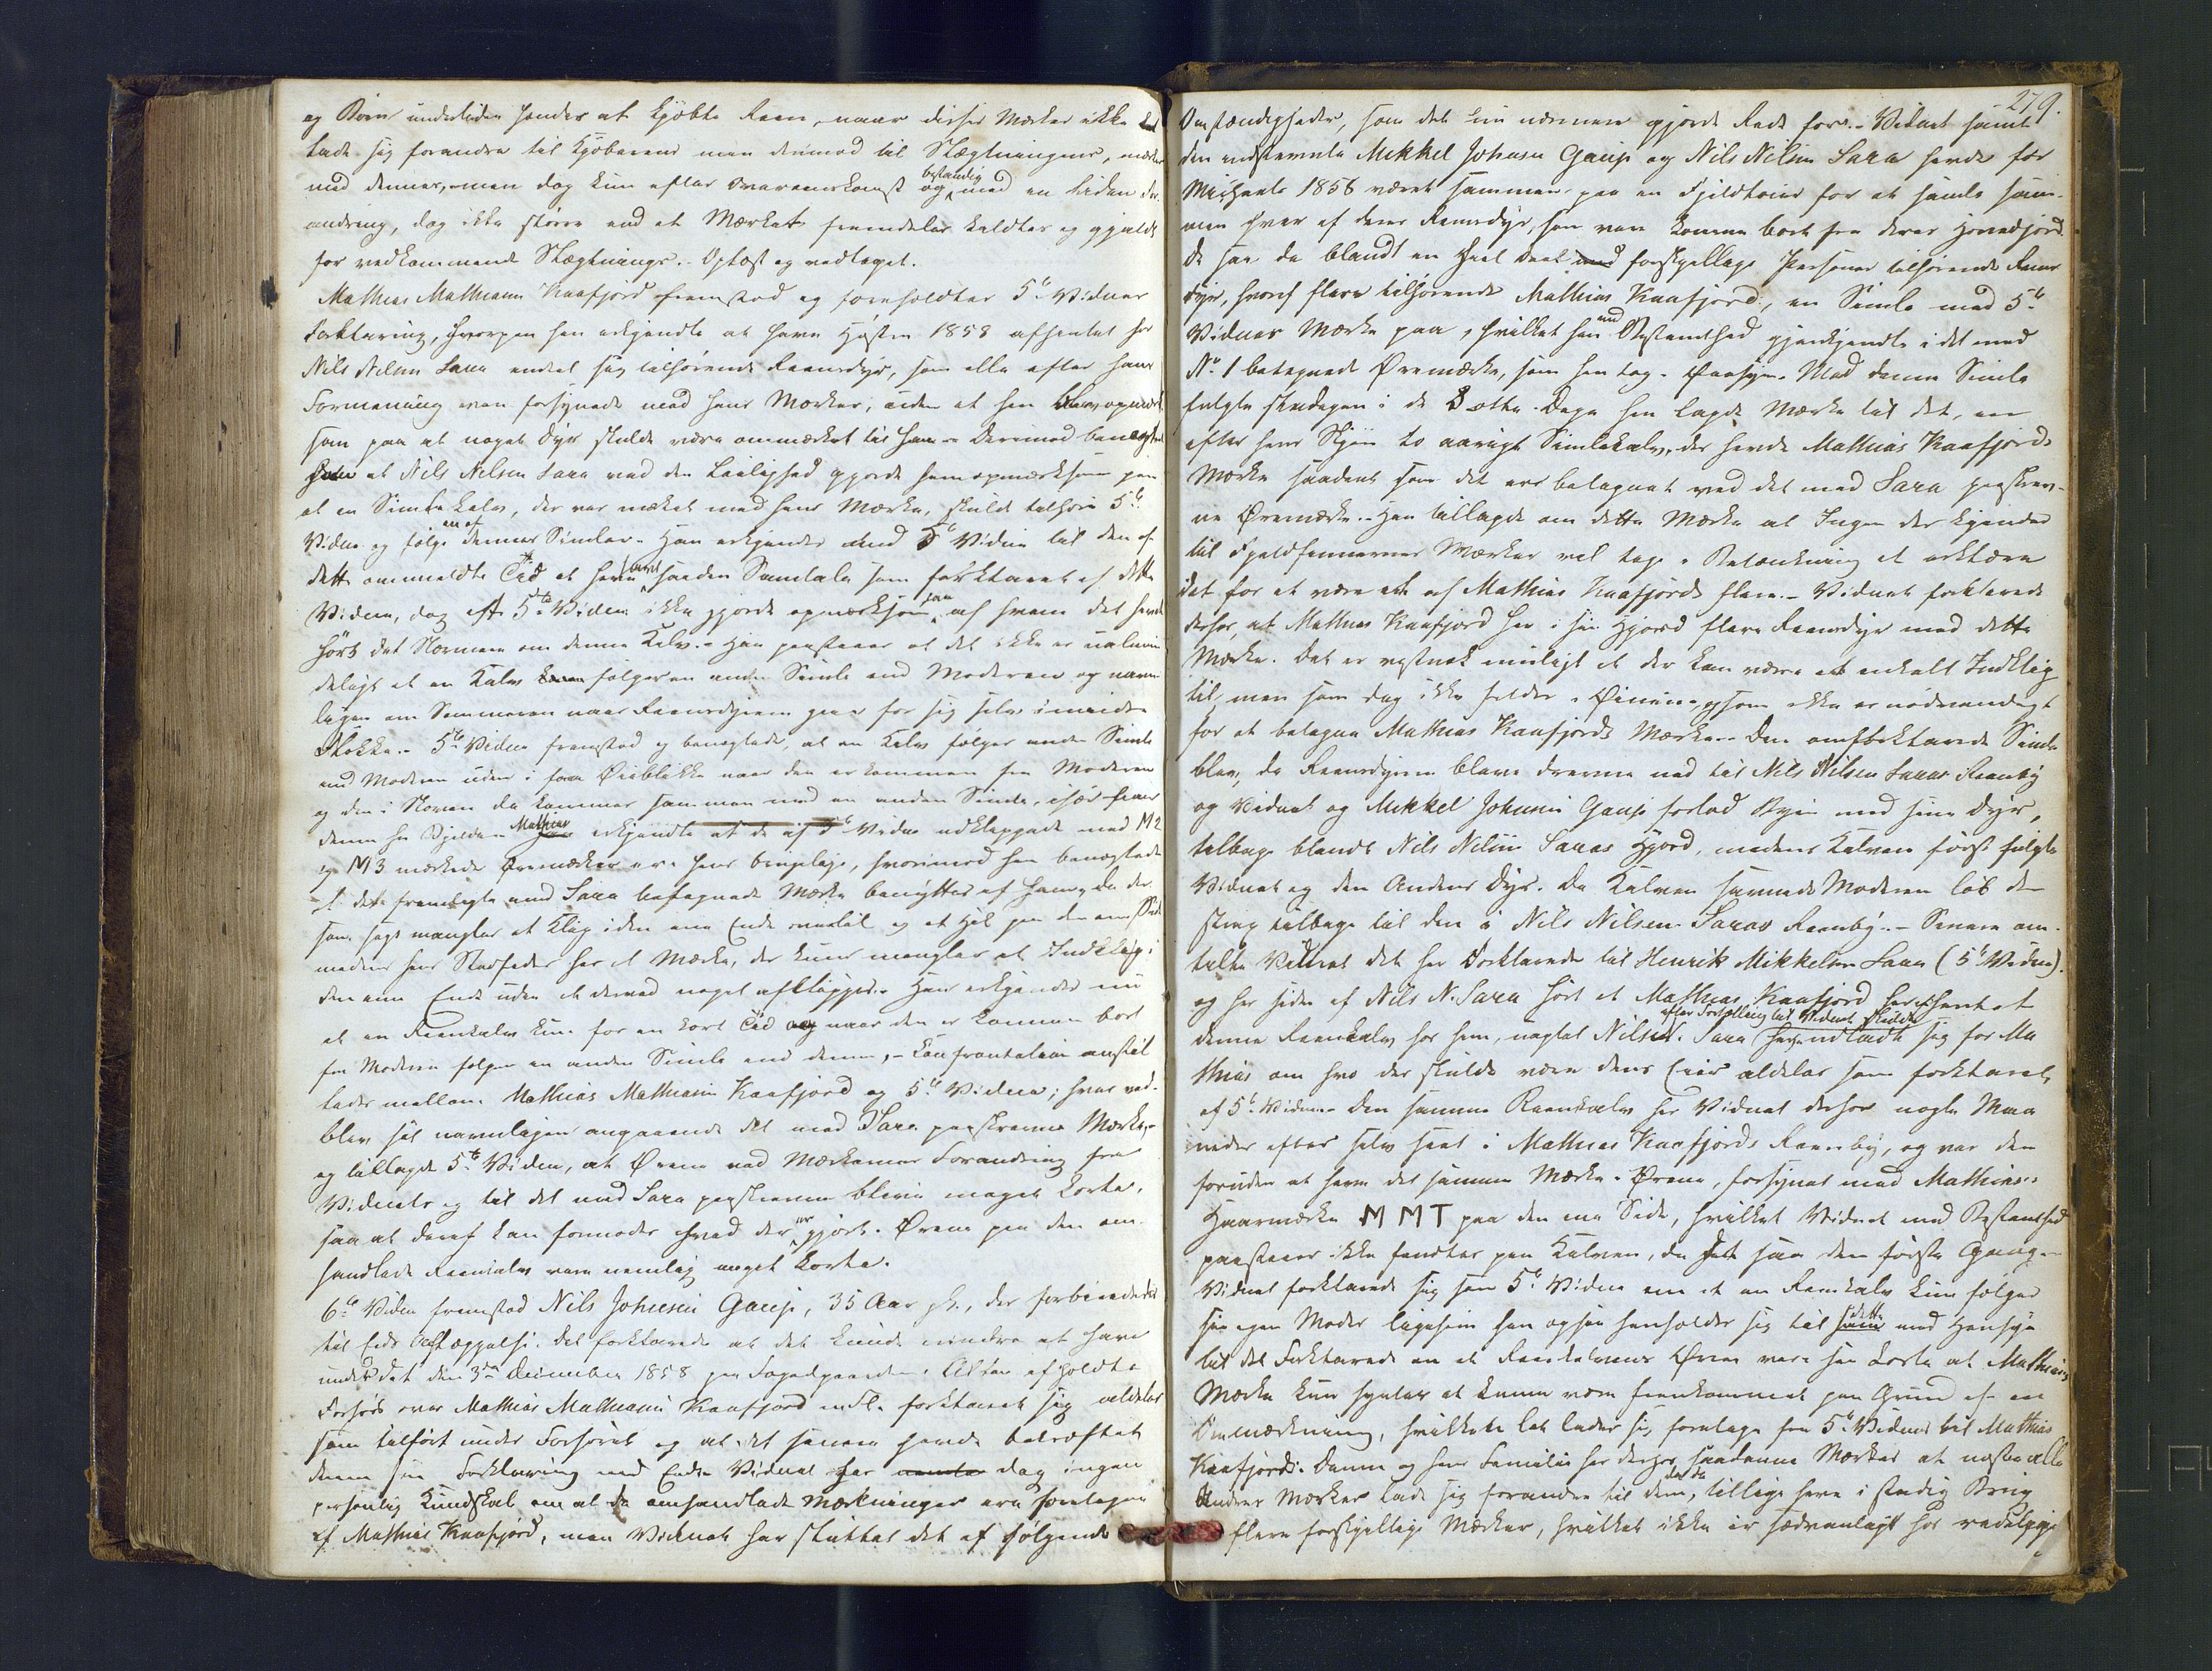 og Børn undertiden hænder at kjøbte Reen, naar disses Mærker ikke
lade sig forandre til Kjøberens men derimod til Slægtningens, mærkes
med dennes, men dog kun efter Overeenskomst og bestandig med en liden For-
andring, dog ikke større end at Mærket fremdeles kaldtes og gjaldt
for vedkommende Slægtnings. - Oplæst og vedtaget.
Mathias Mathiesen Kaafjord fremstod og foreholdtes 5te Vidnes
Forklaring, hvorpaa han erkjendte at have Høsten 1858 afhentet hos
Nils Nilsen Sara endeel sig tilhørende Reensdyr, som alle efter hans
Formening vare forsynede med hans Mærker, uden at han blev opmærk-
som paa at noget Dyr skulde være ommærket til ham. - Derimod benægtes
at Nils Nilsen Sara ved den Leilighed gjorde ham opmærksom paa
at en Simlekalv, der var mærket med hans Mærke, skulde tilhøre 5te
Vidne og følge en af dennes Simler. - Han erkjender med 5te Vidne til den af
dette ommeldte Tid at have havt saadan Samtale som forklaret af dette
Vidne, dog at 5te Vidne ikke gjorde opmærksom paa af hvem det havde
hørt det Nærmere om denne Kalv. - Han paastaaer at det ikke er ualmin-
deligt at en Kalv følger en anden Simle end Moderen og navn-
ligen om Sommeren naar Reensdyrene gaae for sig selv i mindre
Flokke. - 5te Vidne fremstod og benægtede, at en Kalv følger anden Simle
end Moderen uden i faa Øieblikke naar den er kommen fra Moderen
og den i Skoven da kommer sammen med en anden Simle,
Mathias erkjendte at de af 5te Vidne udklippede med M2
og M3 mærkede Øremærker ere hans brugelige, hvorimod han benægtede
at det fremlagte med Sara betegnede Mærke benyttes af ham, da der
som sagt mangler et Klip i den ene Ende og et Hul paa den ene Side
medens hans Stedfader har et Mærke, der kun mangler et Indklip i
den ene Ende uden at derved noget afklippes. Han erkjender nu
at en Reenkalv kun for en kort Tid og naar den er kommen bort
fra Moderen følger en anden Simle end denne. - Confrontation anstil-
ledes mellem Mathias Mathiesen Kaafjord og 5te Vidne; hver ved-
blev sit navnligen angaaende det med Sara paaskrevne Mærke,
og tillagde 5te Vidne, at Ørene ved Mærkernes Forandring fra
Vidnets og til det med Sara paaskrevne bleve meget korte,
saa at deraf kan formodes hvad der er gjort. Ørene paa den om-
handlede Reenkalv vare nemlig meget korte.
6te Vidne fremstod Nils Johnsen Gaup, 35 Aar gl., der forberededes
til Eeds Aflæggelse. Det forklarede at det kunde mindre at have
under det den 3die December 1858 paa Fogedgaarden i Alten afholdte
Forhør over Mathias Mathiesen Kaafjord m. Fl. forklaret sig aldeles
som tilført under Forhøret og at det senere havde bekræftet
denne sin Forklaring med Eed. Vidnet har dog ingen
personlig Kundskab om at de omhandlede Mærkninger ere foretagne
af Mathias Kaafjord, men Vidnet har sluttet det af følgende
279.
Omstændigheder, som det nu nærmere gjorde Rede for. - Vidnet samt
den indstevnte Mikkel Johnsen Gaup og Nils Nilsen Sara havde før
Michaels 1858 været sammen paa en Fjeldtour for at samle sam-
men hver af deres Reensdyr, som vare komne bort fra deres Hovedhjord.
De saa da blandt en heel Deel forskjellige Personer tilhørende Reens-
dyr, hvoraf flere tilhørende Mathias Kaafjord, en Simle med 5te
Vidnes Mærke paa, hvilket han med Bestemthed gjenkjendte i det med
No 1 betegnede Øremærke, som han tog i Øiesyn. Med denne Simle
fulgte stadigen i de 8 otte Dage han lagde Mærke til det, en
efter hans Skjøn to aarigt Simlekalv, der havde Mathias Kaafjords
Mærke saadant som det er betegnet ved det med Sara paaskrev-
ne Øremærke. - Han tillagde om dette Mærke at Ingen der kjender
til Fjeldfinnernes Mærker vil tage i Betænkning at erklære
det for at være et af Mathias Kaafjords flere. - Vidnet forklarede
derhos, at Mathias Kaafjord har i sin Hjord flere Reensdyr med dette
Mærke. Det er vistnok muligt at der kan være et enkelt Indklip
til men som dog ikke falder i Øinene og som ikke er nødvendigt
for at betegne Mathias Kaafjords Mærke. - Den omforklarede Simle
blev, da Reensdyrene bleve drevne ned til Nils Nilsen Saras Reenby
og Vidnet og Mikkel Johnsen Gaup forlod Byen med sine Dyr,
tilbage blandt Nils Nilsen Saras Hjord, medens Kalven først fulgte
Vidnet og den Andens Dyr. Da Kalven savnede Moderen løb den
strax tilbage til den i Nils Nilsen Saras Reenby. - Senere om-
talte Vidnet det her Forklarede til Henrik Mikkelsen Sara (5te Vidne).
og har siden af Nils N. Sara hørt at Mathias Kaafjord har afhentet
denne Reenkalv hos ham, uagtet Nils N. Sara efter Fortælling til Vidnet skulde have udladt sig for Ma-
thias om hvo der skulde være dens Eier aldeles som forklaret
af 5te Vidne. Den samme Reenkalv har Vidnet derhos nogle Maa-
neder efter selv seet i Mathias Kaafjords Reenby, og var den
foruden at have det samme Mærke i Ørene, forsynet med Mathias's
Haarmærke M M T paa den ene Side, hvilket Vidnet med Bestemthed
paastaaer ikke fandtes paa Kalven, da det saa den første Gang.
Vidnet forklarede sig som 5te Vidne om at en Reenkalv kun følger
sin egen Moder ligesom han ogsaa henholder sig til dette med Hensyn
til det Forklarede om at Reenkalvens Øren vare saa korte at Mathias's
Mærke kun syntes at kunne være fremkommet paa Grund af en
Ommærkning, hvilket let lader sig foretage fra 5te Vidnes til Mathias
Kaafjords. Denne og hans Familie har derhos saadanne Mærker at næsten alle
Andres Mærker lade sig forandre til dem, tillige have de i stadig Brug
flere forskjellige Mærker, hvilket ikke er sædvanligt hos